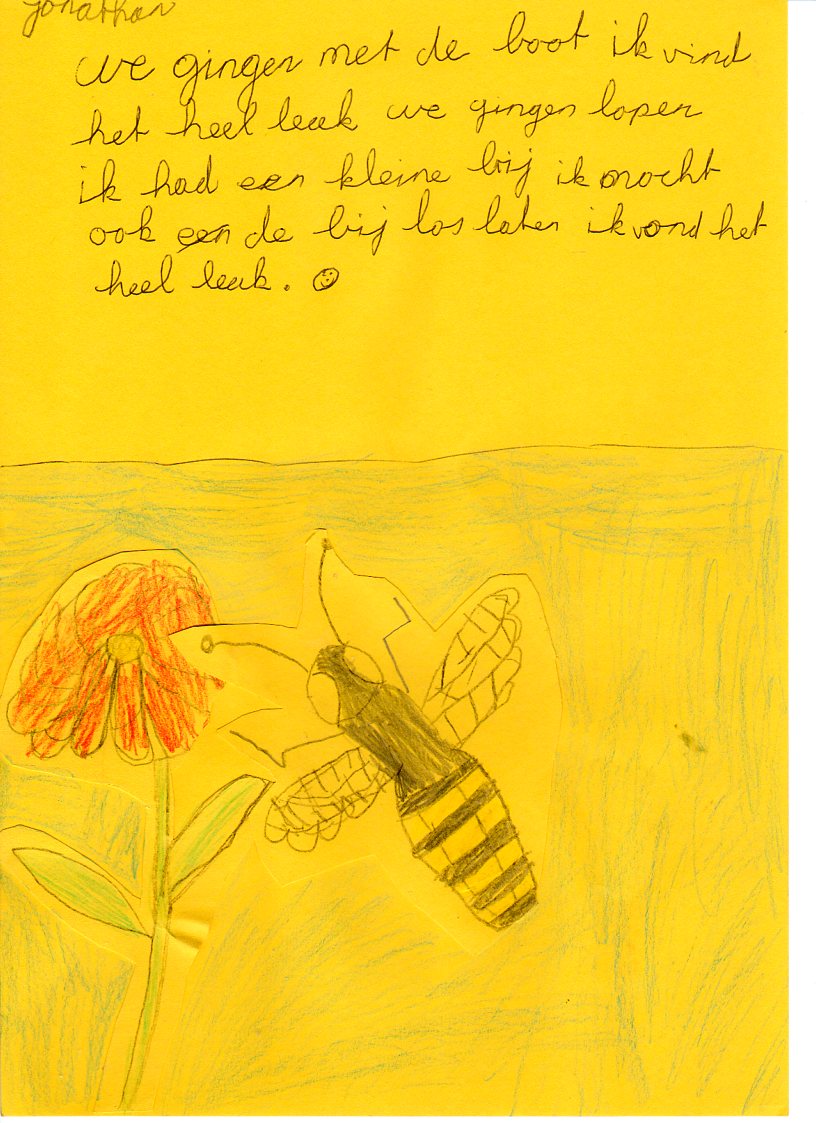 jonathan
we gingen met de boot ik vind
het heel leuk we gingen lopen
ik had een kleine bij ik mocht
ook een de bij los laten ik vond het
heel leuk. ☺